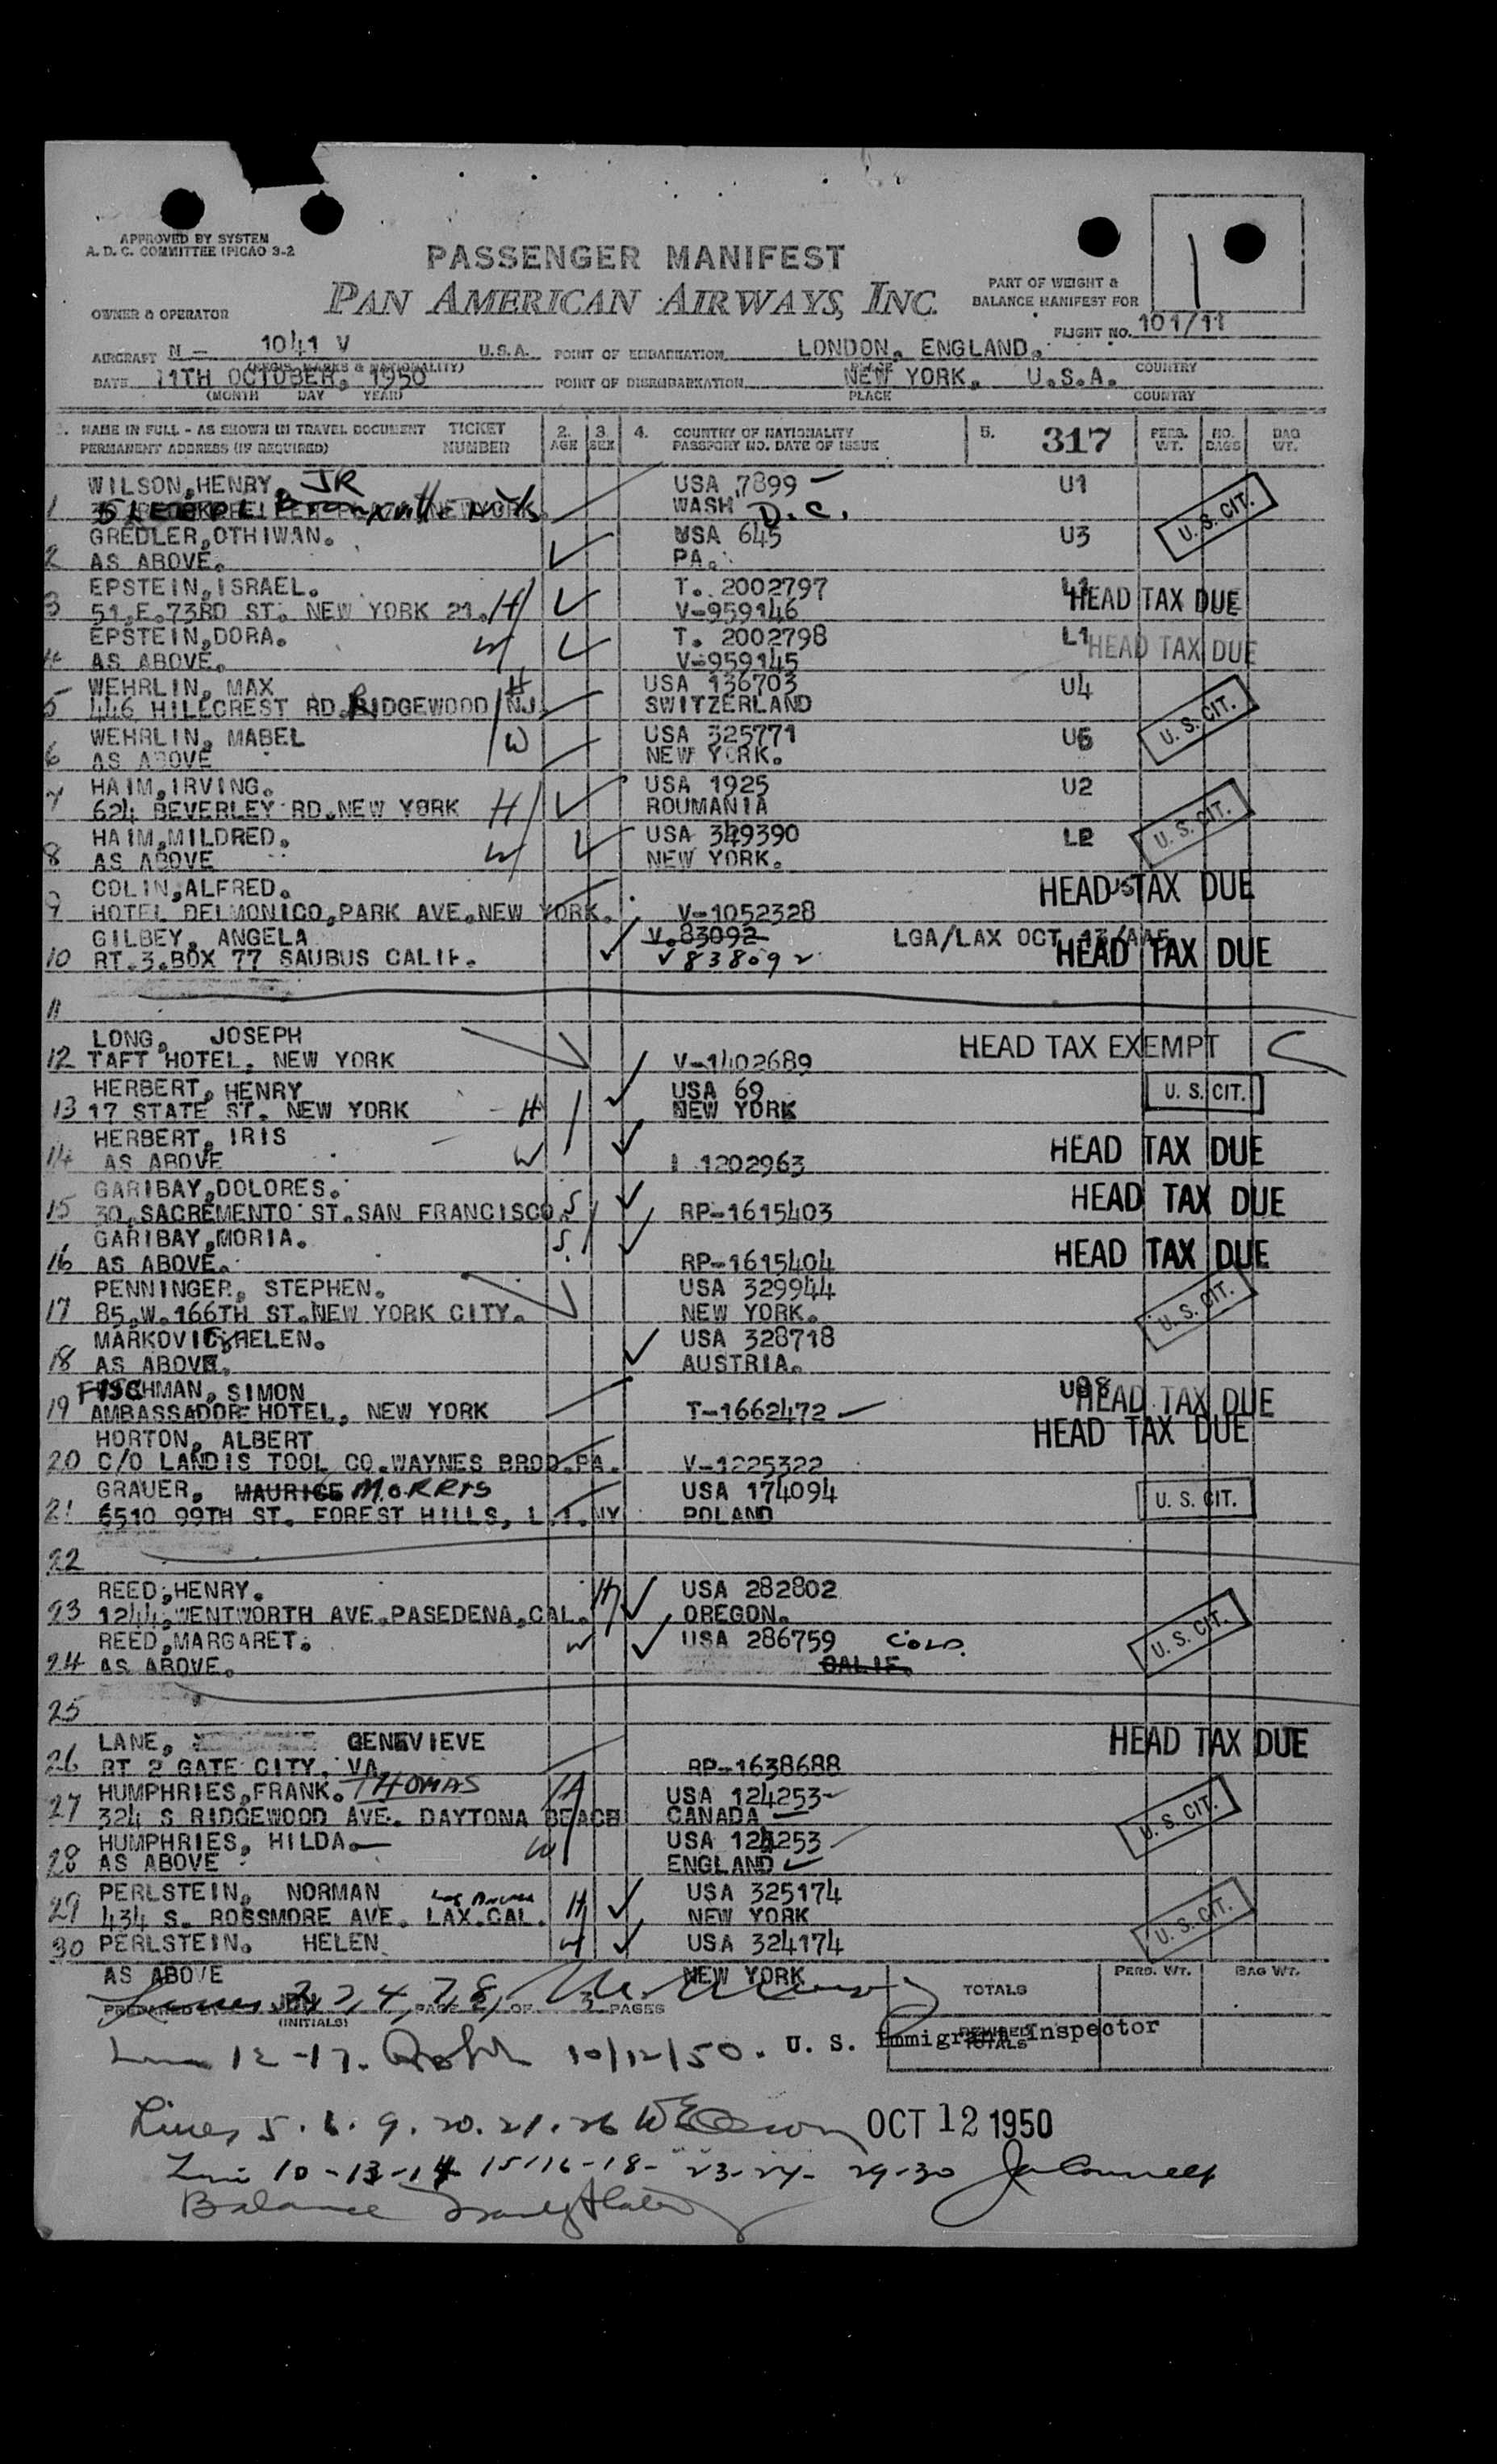 APPROVED BY SYSTEM
A. D. C. COMMITTEE (PICAO 3-2
PASSENGER MANIFEST
PAN AMERICAN AIRWAYS, INC.
PART OF WEIGHT &
BALANCE MANIFEST FOR
1
OWNER & OPERATOR
FLIGHT NO. 101/11
AIRCRAFT N - 1041 V U.S.A. POINT OF EMBARKATION LONDON, ENGLAND.
(REGIS. MARKS & NATIONALITY) PLACE COUNTRY
DATE 11TH OCTOBER, 1950 POINT OF DISEMBARKATION NEW YORK, U.S.A.
(MONTH DAY YEAR) PLACE COUNTRY
1. NAME IN FULL - AS SHOWN IN TRAVEL DOCUMENT TICKET 2. 3. 4. COUNTRY OF NATIONALITY 5. 317 PERS. NO. BAG
PERMANENT ADDRESS (IF REQUIRED) NUMBER AGE SEX PASSPORT NO. DATE OF ISSUE WT. BAGS WT.
WILSON,HENRY, JR USA 7899 U1
1 Bronxville WASH D.C. U.S. CIT.
GREDLER,OTHIWAN. USA 645 U3
2 AS ABOVE. PA.
EPSTEIN,ISRAEL. T. 2002797 L1
3 51,E.73RD ST. NEW YORK 21. H V-959146 HEAD TAX DUE
EPSTEIN,DORA. W T. 2002798 L1
4 AS ABOVE. V-959145 HEAD TAX DUE
WEHRLIN, MAX H USA 136703 U4
5 446 HILLCREST RD.RIDGEWOOD NJ. SWITZERLAND U.S. CIT.
WEHRLIN, MABEL W USA 325771
6 AS ABOVE NEW YORK.
HAIM,IRVING. USA 1925 U2
7 624 BEVERLEY RD.NEW YORK H ROUMANIA
HAIM,MILDRED. USA 349390 U.S. CIT.
8 AS ABOVE W NEW YORK.
COLIN,ALFRED. HEAD TAX DUE
9 HOTEL DELMONICO,PARK AVE.NEW YORK. V-1052328
GILBEY, ANGELA V.83092 LGA/LAX OCT 13/AAE
10 RT.3.BOX 77 SAUBUS CALIF. V838092 HEAD TAX DUE
11
LONG, JOSEPH HEAD TAX EXEMPT
12 TAFT HOTEL, NEW YORK V-1402689
HERBERT, HENRY USA 69 U.S. CIT.
13 17 STATE ST. NEW YORK H NEW YORK
HERBERT, IRIS HEAD TAX DUE
14 AS ABOVE W 1202963
GARIBAY,DOLORES. HEAD TAX DUE
15 30,SACREMENTO ST.SAN FRANCISCO. S RP-1615403
GARIBAY,MORIA. S. HEAD TAX DUE
16 AS ABOVE. RP-1615404
PENNINGER, STEPHEN. USA 329944
17 85,W.166TH ST.NEW YORK CITY. NEW YORK. U.S. CIT.
MARKOVIC,HELEN. USA 328718
18 AS ABOVE. AUSTRIA.
FISCHMAN, SIMON HEAD TAX DUE
19 AMBASSADOR HOTEL, NEW YORK T-1662472
HORTON, ALBERT HEAD TAX DUE
20 C/O LANDIS TOOL CO.WAYNES BROD.PA. V-1225322
GRAUER, MAURICE MORRIS USA 174094 U.S. CIT.
21 6510 99TH ST. FOREST HILLS, L.I.NY POLAND
22
REED,HENRY. H USA 282802
23 1244,WENTWORTH AVE.PASEDENA,CAL. OREGON.
REED,MARGARET. W USA 286759 COLO. U.S. CIT.
24 AS ABOVE. CALIF.
25
LANE, GENEVIEVE HEAD TAX DUE
26 RT 2 GATE CITY, VA RP-1638688
HUMPHRIES,FRANK. THOMAS USA 124253
27 324 S RIDGEWOOD AVE. DAYTONA BEACH CANADA U.S. CIT.
HUMPHRIES, HILDA. W USA 124253
28 AS ABOVE ENGLAND
PERLSTEIN, NORMAN Los Angeles H USA 325174
29 434 S. ROSSMORE AVE. LAX.CAL. NEW YORK U.S. CIT.
30 PERLSTEIN. HELEN W USA 324174
AS ABOVE NEW YORK PERS. WT. BAG WT.
PREPARED PAGE OF 3 PAGES TOTALS
(INITIALS)
U. S. Immigrant Inspector
12-17. 10/12/50.
REVISED TOTALS
Lines 5. 6. 9. 20. 21. 26 OCT 12 1950
10-13-14 15-16-18- 23-24- 29-30
Balance